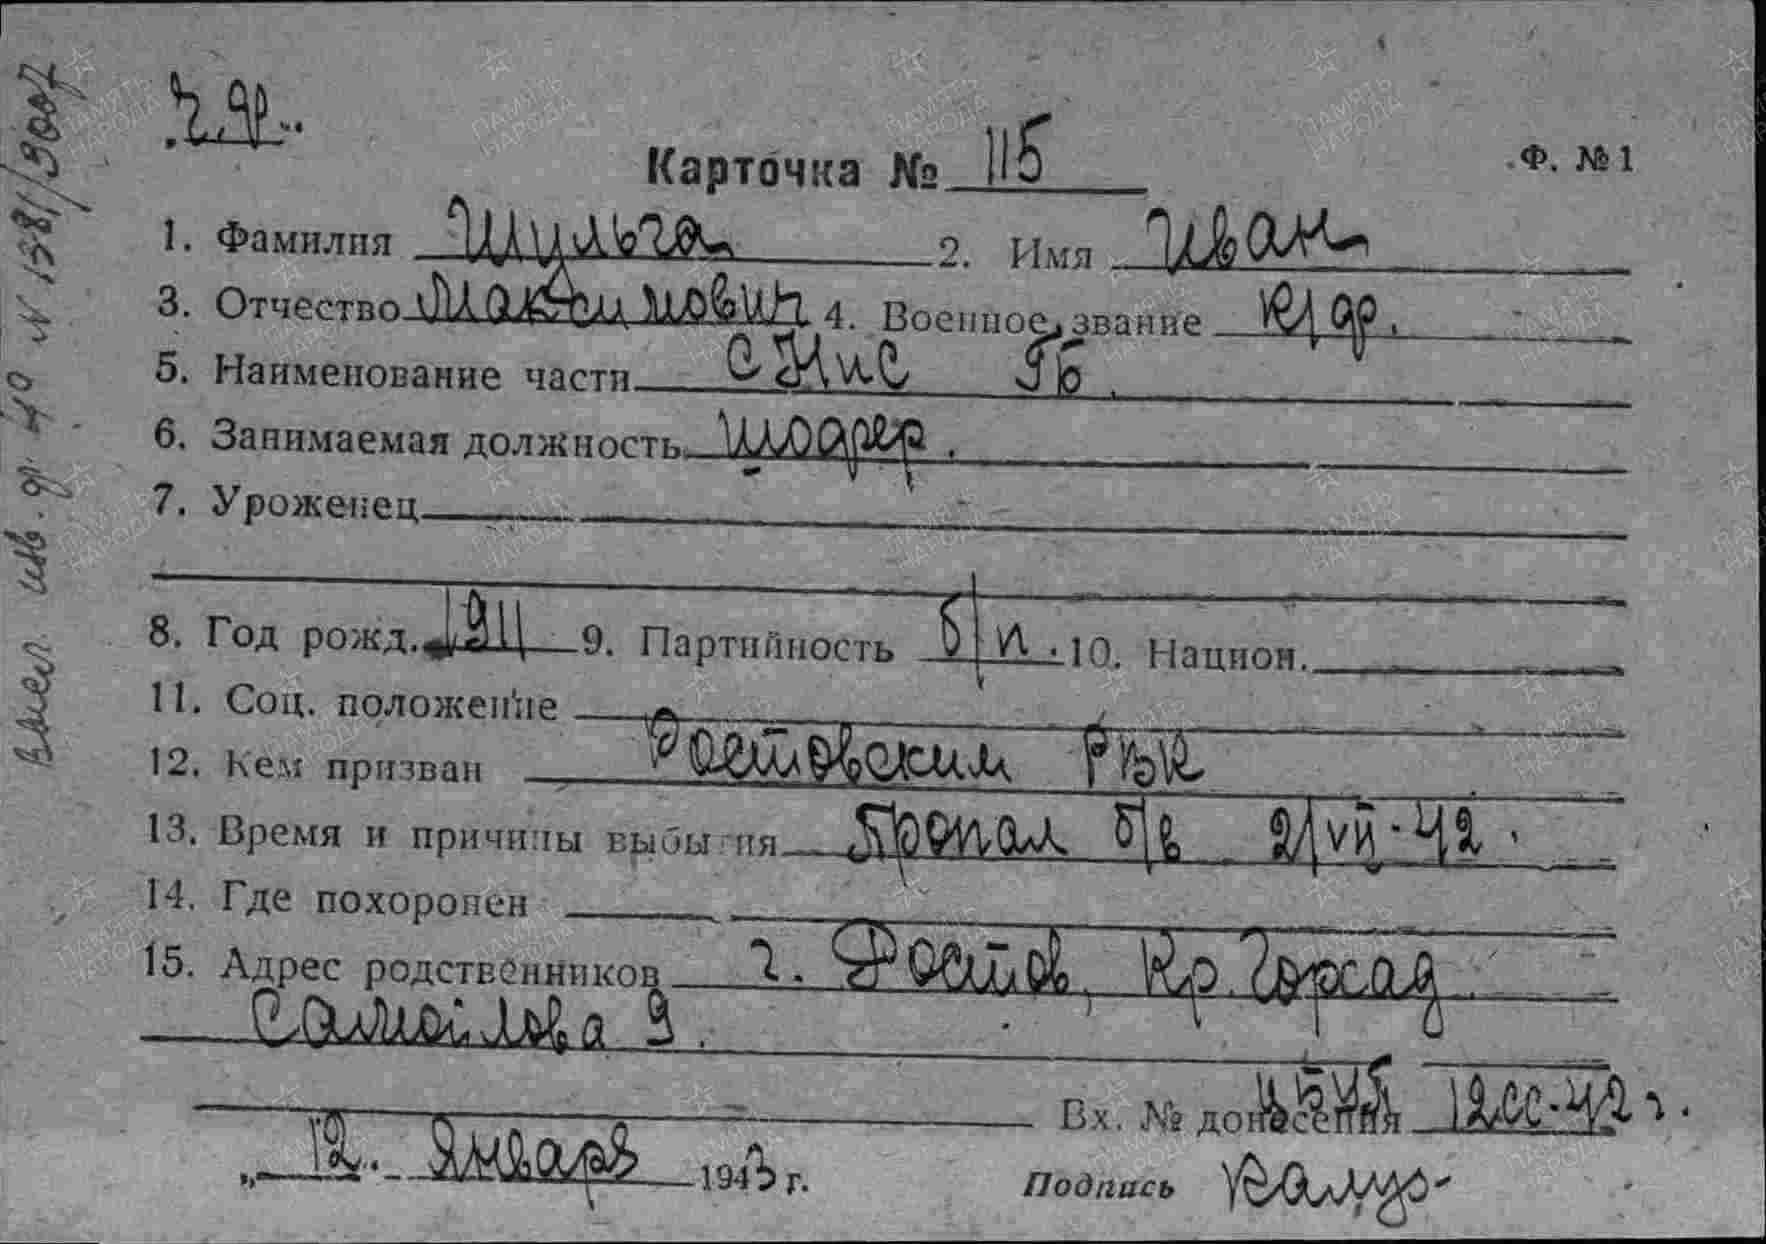 Ч. ЯР.
Карточка № 115 Ф. № 1
1. Фамилия Шульга 2. Имя Иван
3. Отчество Максимович 4. Военное звание к/ар.
5. Наименование части
6. Занимаемая должность шофер.
7. Уроженец
8. Год рожд. 1911 9. Партийность б/п. 10. Национ.
11. Соц. положение
12. Кем призван Ростовским РВК
13. Время и причины выбытия Пропал б/в 2/VII-42.
14. Где похоронен
15. Адрес родственников г. Ростов, Кр. Горсад
Самойлова 9.
Вх. № донесения 12сс-42 г.
„ 12. Января 1943 г. Подпись
ПАМЯТЬ НАРОДА